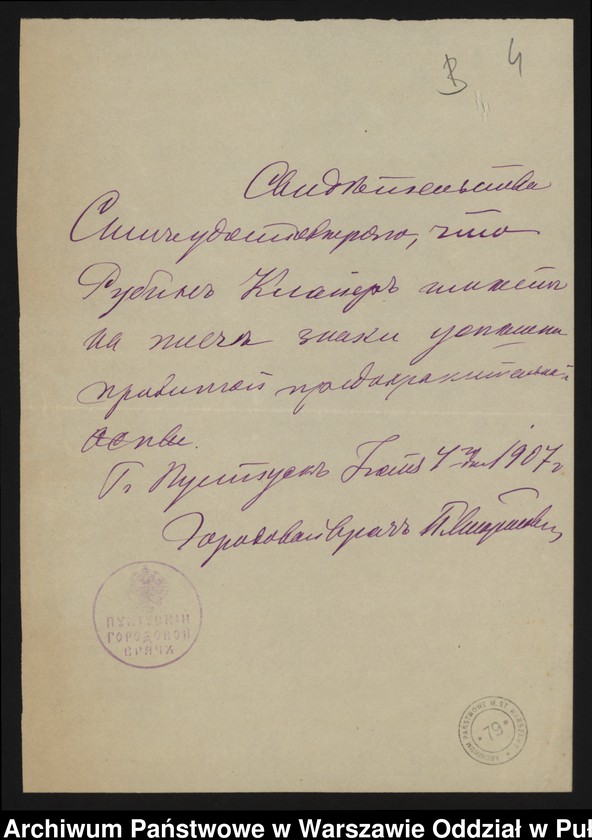 В 4
Свидѣтельство
Симъ удостовѣряю, что
Рубинъ Клайнеръ имѣетъ
на плечѣ знаки успешно
привитой предохранительной
оспы.
Г. Пултускъ 1907 г.
Городовой врачъ
ПУЛТУСКІЙ
ГОРОДОВОЙ
ВРАЧЪ
ARCHIWUM PAŃSTWOWE M. ST. WARSZAWY
79
Archiwum Państwowe w Warszawie Oddział w Puł